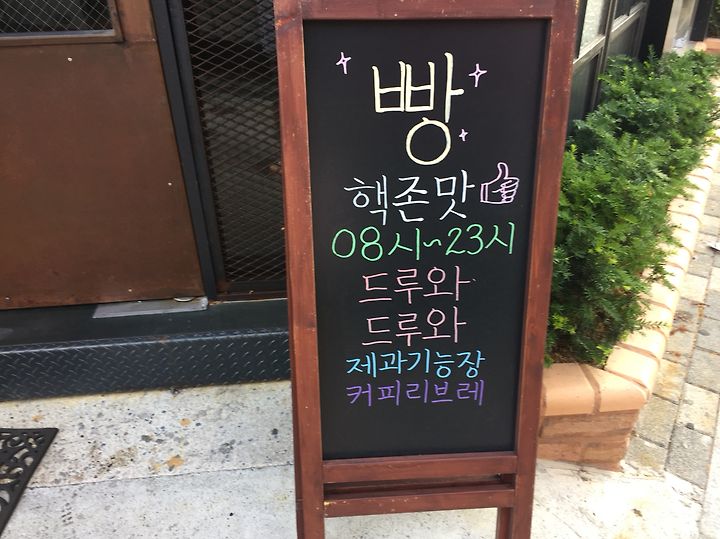 빵
핵존맛
08시~23시
드루와
드루와
제과기능장
커피리브레